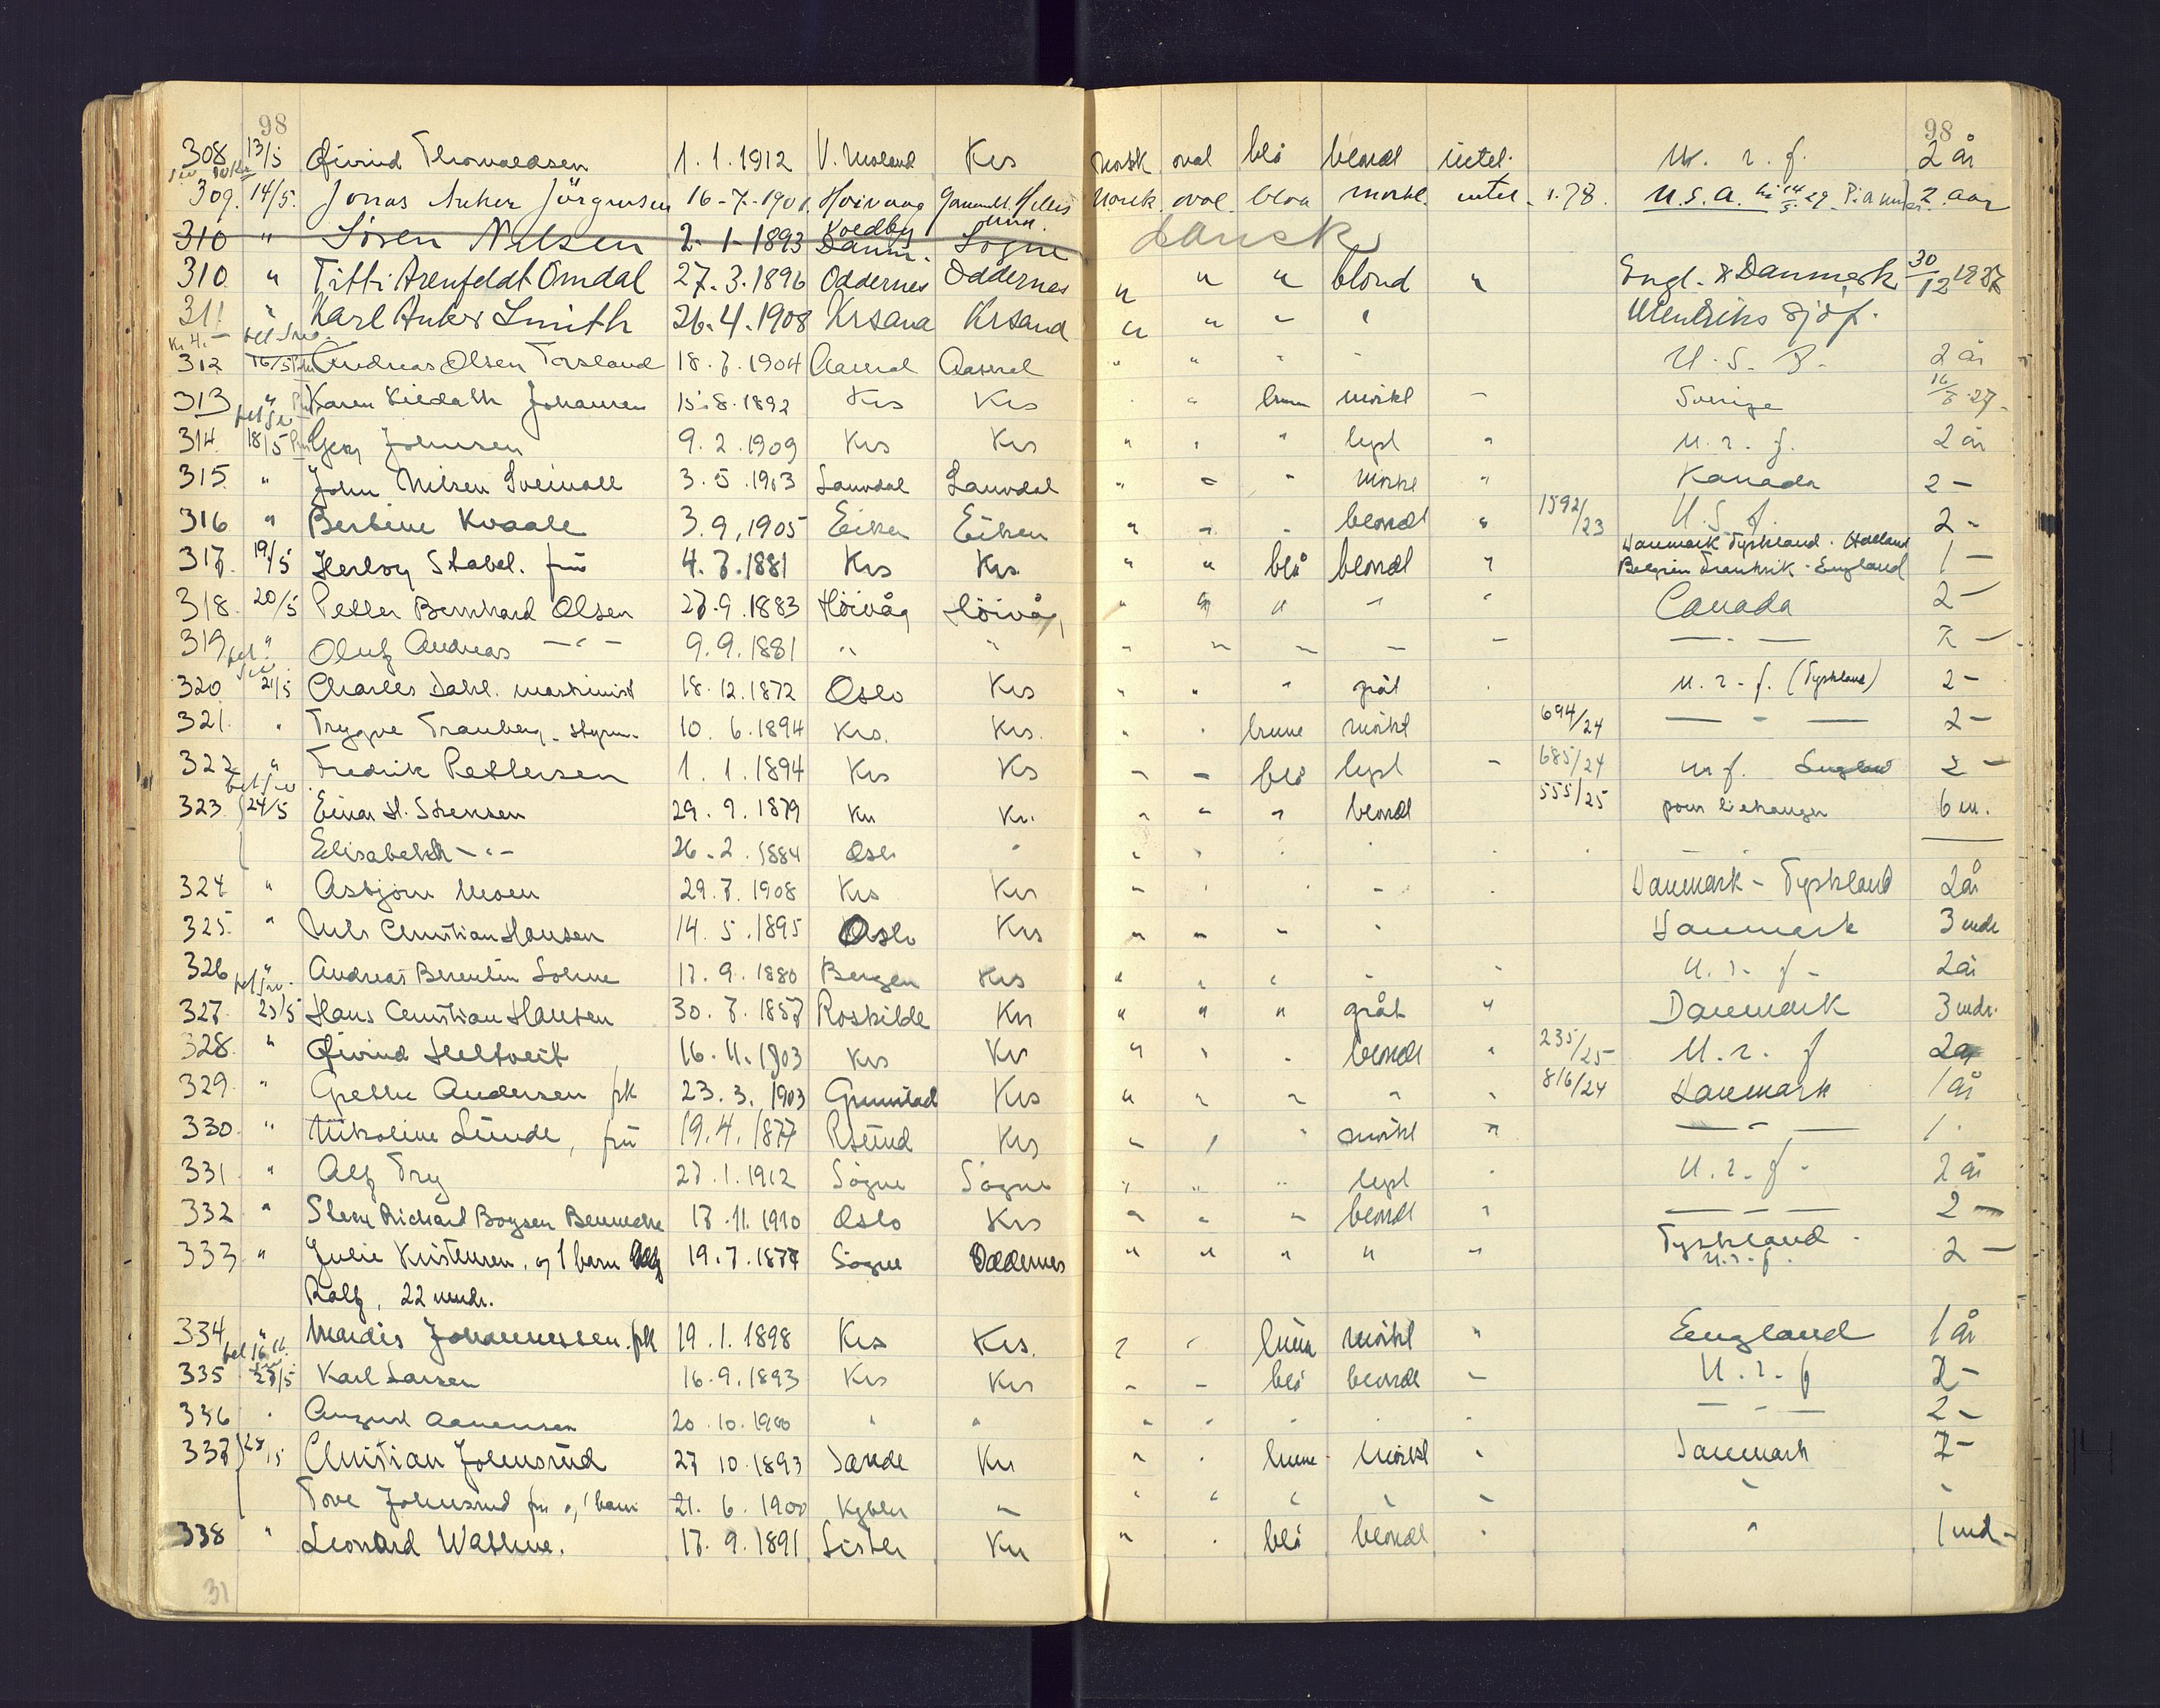 98 98
308 13/5 Øivind Thorvaldsen 1.1.1912 V. Moland Krs norsk oval blå blond intet u. r. f. 2 år
309. 14/5. Jonas Anker Jörgensen 16-7-1901. Höivaag Norsk. oval. blaa mörkt. intet. 1.78. U.S.A. 2 aar
310 " Sören Nilsen 2-1-1893 Koldby Danm. Sogne dansk
310 " Titti Arenfeldt Omdal 27.3.1896 Oddernes Oddernes " " " blond " Engl. & Danmark 30/12 1927
311 " Karl Anker Smith 26.4.1908 Krsand Krsand " " " " Utenriks sjöf.
312 16/5 Andreas Olsen Torsland 18.7.1904 Aaseral Aaseral " " " " 2 år
313 " Karen Johansen 15.8.1892 Krs Krs " " brune mörkt - Sverige 27
314 18/5 Georg Johnsen 9.2.1909 Krs Krs " " " lyst " u. r. f. 2 år
315 " John Nilsen Sveinall 3.5.1903 Lauvdal Lauvdal " " " mörkt " Kanada 2 -
316 " Berbine Kvaale 3.9.1905 Eiken Eiken " " " blondt " 1592/23 U. S. 2 -
317. 19/5 Herlog Stabel. frü 4.7.1881 Krs Krs. " " blå blondt " Danmark Tyskland. Holland Belgien Frankrik - England 1 -
318. 20/5 Petter Bernhard Olsen 27.9.1883 Höivåg Höivåg " " " " " Canada 2 -
319 " Oluf Andreas - " - 9.9.1881 " " " " " " " - " - 2 -
320 21/5 Charles Dahl. maskinist 18.12.1872 Oslo Krs " " " gråt " u. r. f. (Tyskland) 2 -
321. " Trygve Tranberg. styrm. 10.6.1894 Krs. Krs. " " brune mörkt 694/24 - " - 2 -
322 " Fredrik Pettersen 1.1.1894 Krs Krs " " blå lyst " 685/24 u r f. 2 -
323 24/5 Einar H. Sörensen 29.9.1879 Kr. Kr. " " " blondt 555/25 pour l'etranger 6 m.
Elisabeth - " - 26.2.1884 Oslo " " " " " " "
324 " Asbjörn Moen 29.7.1908 Krs Krs " " " " " Danmark - Tyskland 2 år
325. " Nils Christian Hansen 14.5.1895 Oslo Krs " " " " Danmark 3 mdr
326 " Andreas Berentin Sohne 17.9.1880 Bergen Krs " " " " " u. r. f. 2 år
327. 25/5 Hans Christian Hansen 30.7.1857 Roskilde Kr " " " gråt " Danmark 3 mdr.
328. " Øivind Heltveit 16.11.1903 Krs Krs " " " blondt " 235/25 u. r. f 2 år
329. " Grethe Andersen frk 23.3.1903 Grimstad Krs " " " " " 816/24 Danmark 1 år
330. " Nikoline Lunde, frü 19.4.1877 Krs " " " mörkt " - " - 1.
331 " Alf Try 27.1.1912 Sögne Sögne " " " lyst " u. r. f. 2 år
332 " Richard Boysen 17.11.1910 Oslo Krs " " " blondt " - - - 2 -
333 " Julie Kristensen, og 1 barn 19.7.1877 Sögne Oddernes " " " " " Tyskland. u. r. f. 2 -
Ralf, 22 mndr.
334 " Mardis Johannessen. frk 19.1.1898 Krs Krs. " " brune mörkt " England 1 år
335 27/5 Karl Larsen 16.9.1893 Krs Krs " " blå blondt " u. r. f 2 -
336 " August Aanensen 20.10.1900 " " " " " " " - " - 2 -
337 28/5 Christian Johnsrud 27 10.1893 Sande Kr " " brune mörkt " Danmark 2 -
Tove Johnsrud fru o, 1 barn 21.6.1900 Kjbhn " " " " " " " "
338 " Leonard Wathne. 17.9.1891 Lister Kr " " blå blondt " " 1 md -
31